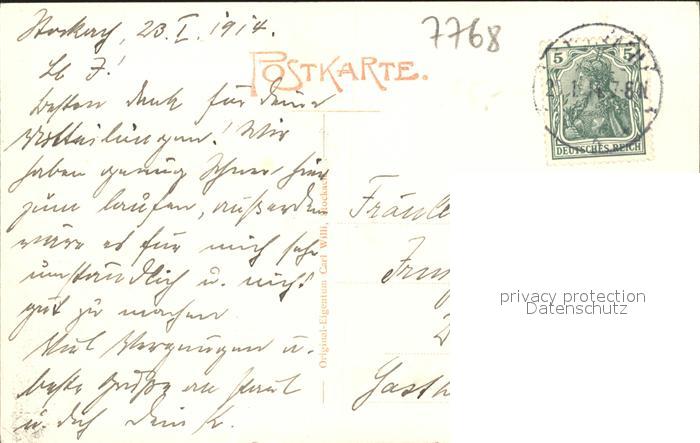 Stockach, 23. I. 1914.
7768
Lb. J.!
POSTKARTE.
Besten Dank für deine
Mitteilungen! Wir
haben genug Schnee hier
zum laufen, außerdem
wäre es für mich sehr
umständlich u. nicht
gut zu machen.
Viel Vergnügen u.
beste Grüße an Paul
u. dich Dein K.
Original-Eigentum Carl Willi, Stockach
5 5
DEUTSCHES REICH
Fräule
Gasth
privacy protection
Datenschutz